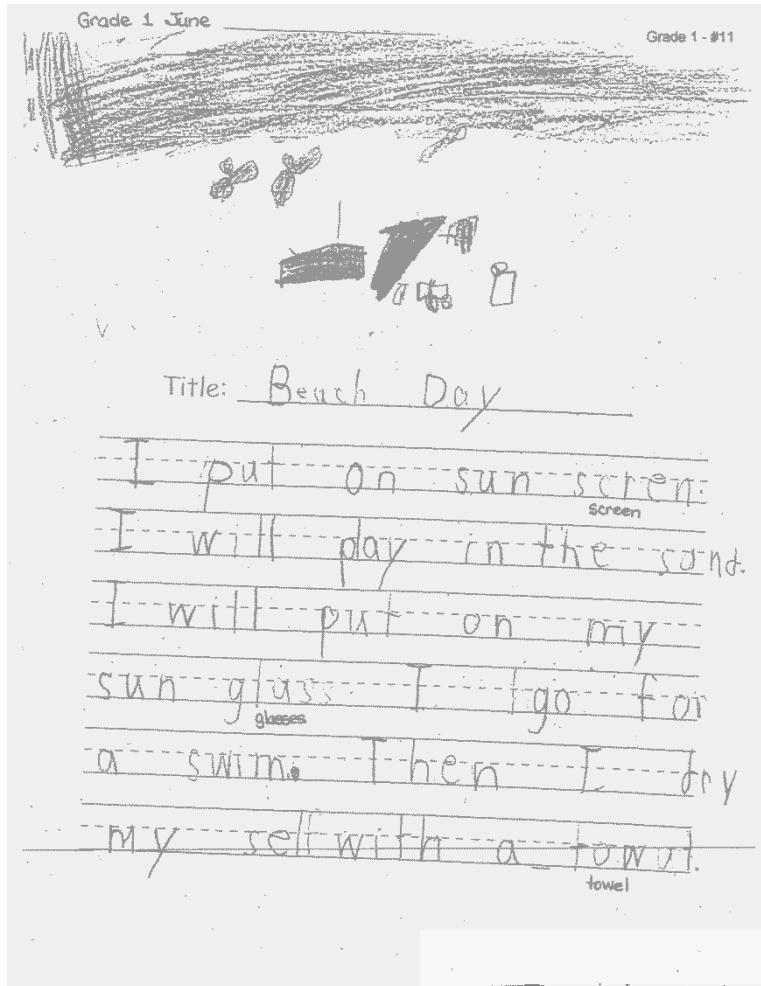 Grade 1 June
Grade 1 - #11
Title: Beach Day
I put on sun scren.
screen
I will play in the sand.
I will put on my
sun glass I go for
glasses
a swim. Then I dry
my self with a towol.
towel